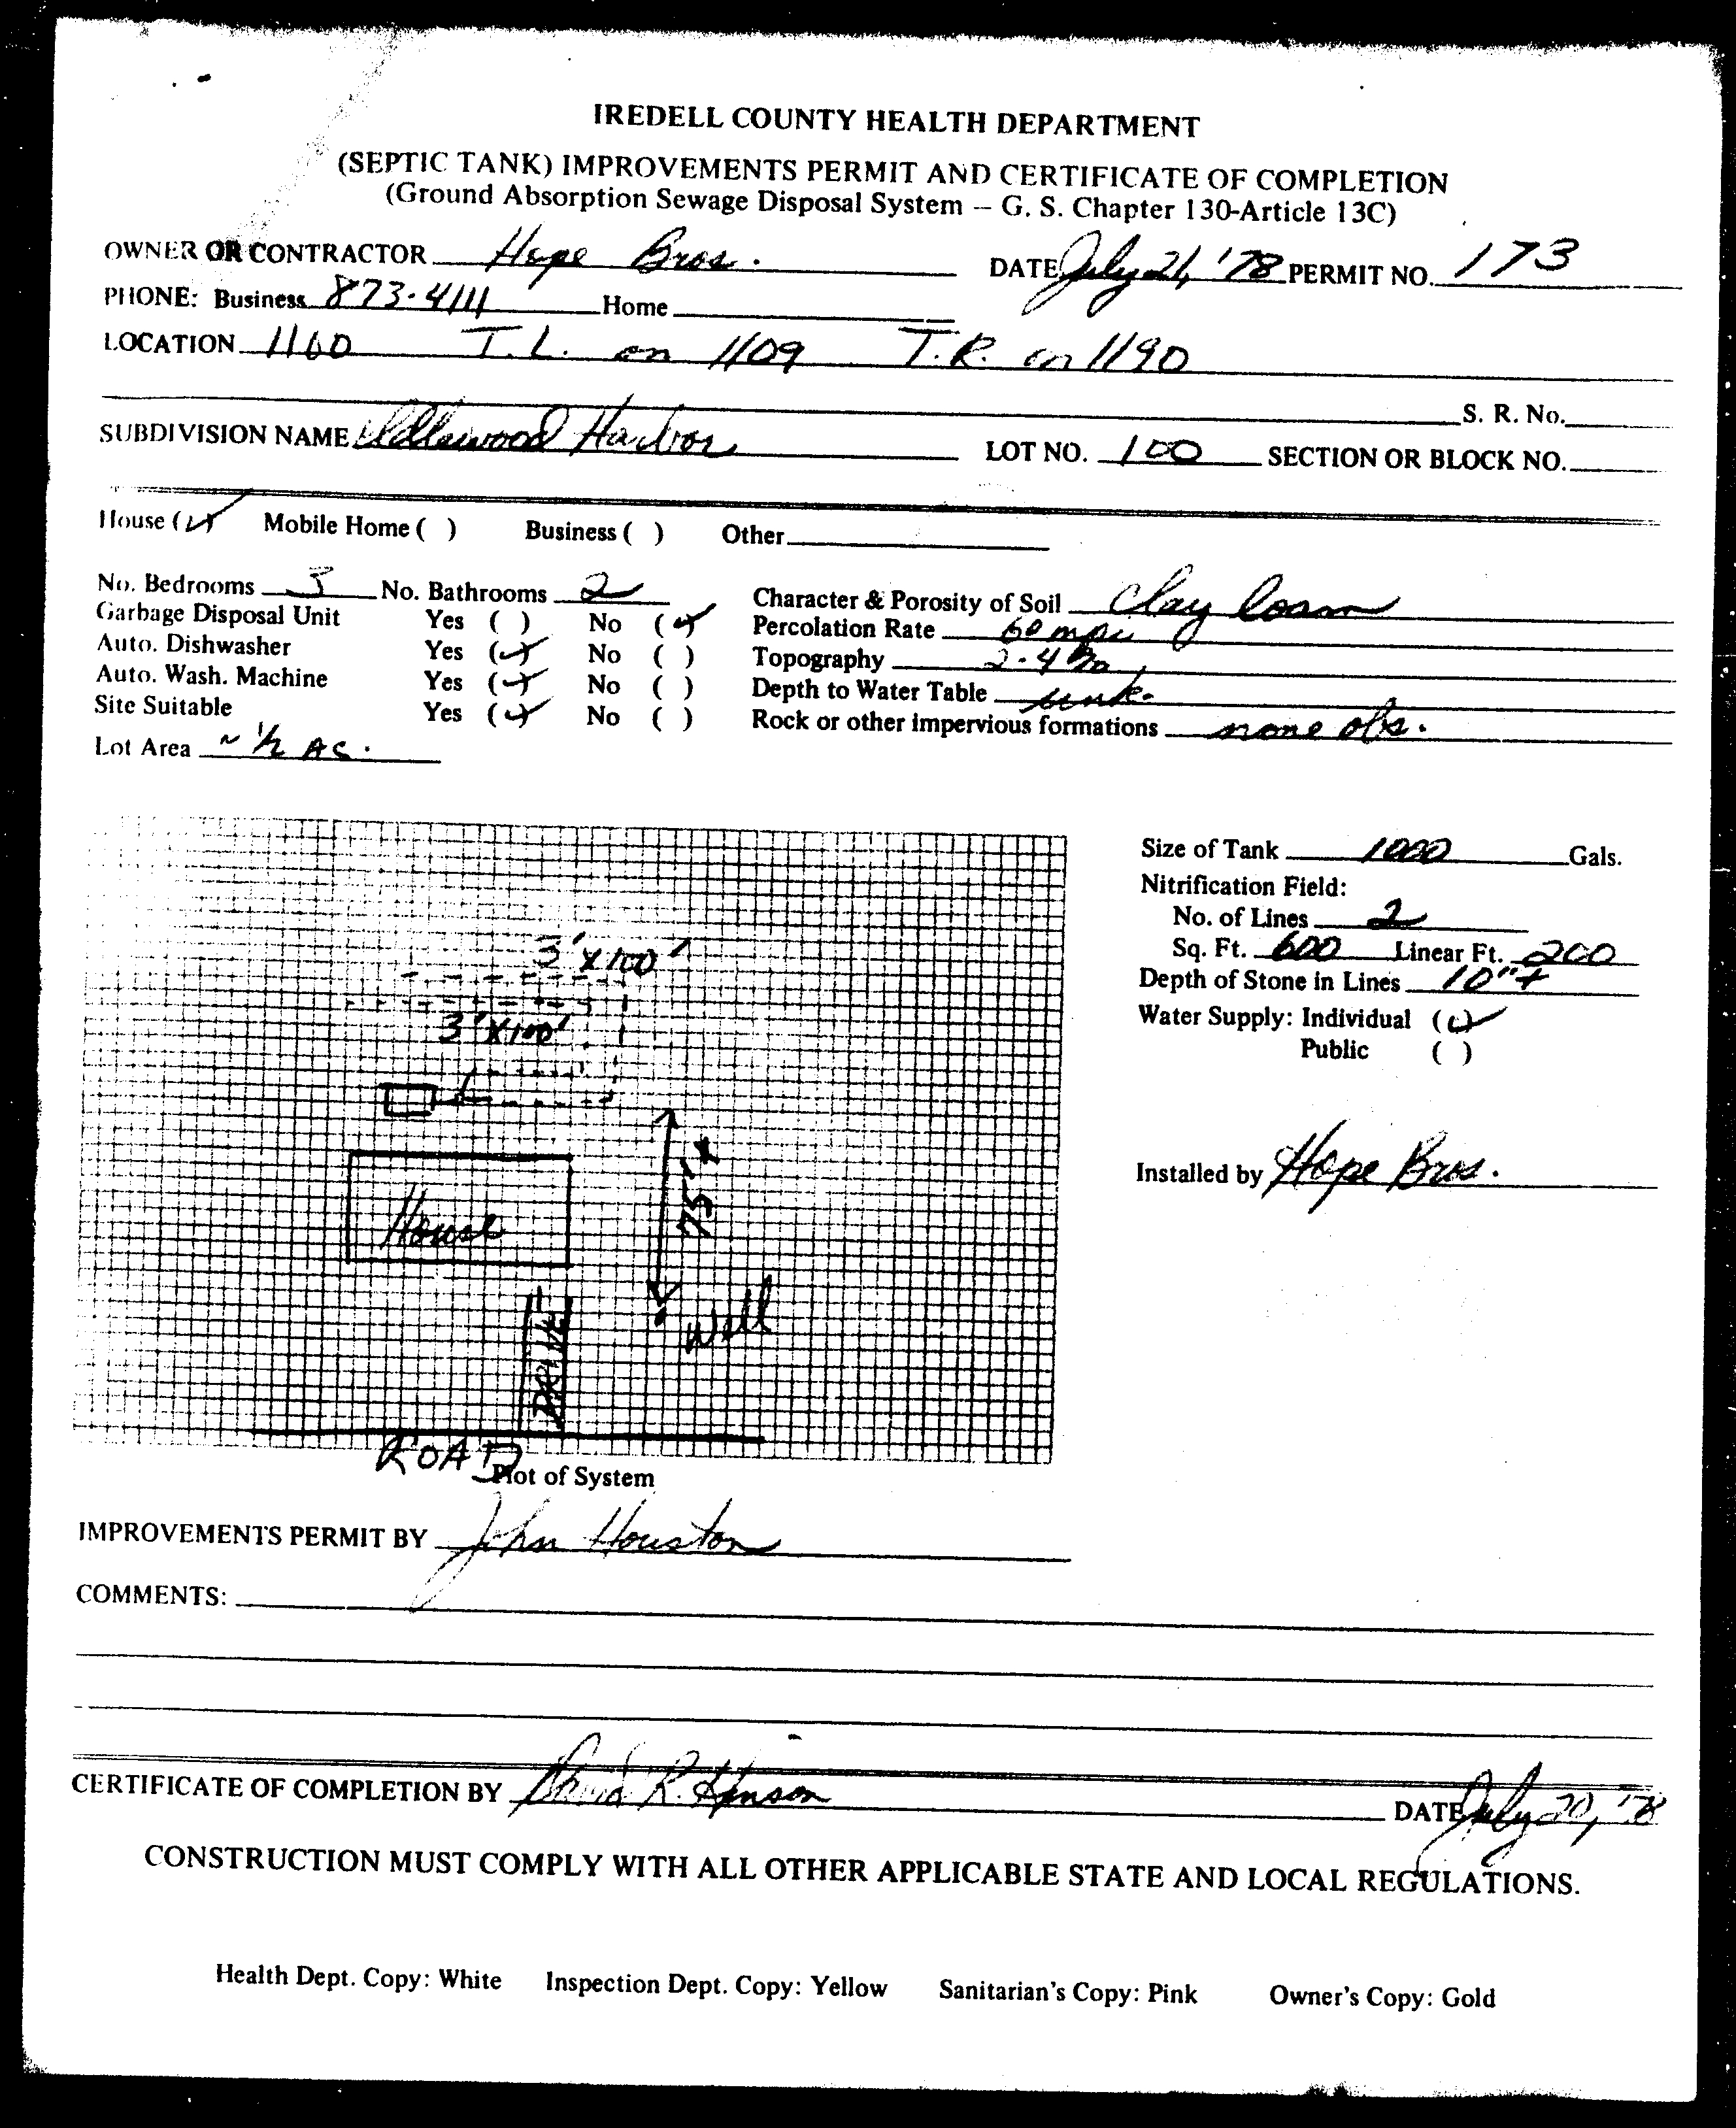 IREDELL COUNTY HEALTH DEPARTMENT
(SEPTIC TANK) IMPROVEMENTS PERMIT AND CERTIFICATE OF COMPLETION
(Ground Absorption Sewage Disposal System – G. S. Chapter 130-Article 13C)
OWNER OR CONTRACTOR Hope Bros. DATE July 21, '78 PERMIT NO. 173
PHONE: Business 873-4111 Home
LOCATION 1160 T.L. on 1109 T.R. on 1190
S. R. No.
SUBDIVISION NAME Harbor LOT NO. 100 SECTION OR BLOCK NO.
House (✓) Mobile Home ( ) Business ( ) Other
No. Bedrooms 3 No. Bathrooms 2 Character & Porosity of Soil Clay loam
Garbage Disposal Unit Yes ( ) No (✓) Percolation Rate 60 mpi
Auto. Dishwasher Yes (✓) No ( ) Topography 2-4%
Auto. Wash. Machine Yes (✓) No ( ) Depth to Water Table unk.
Site Suitable Yes (✓) No ( ) Rock or other impervious formations none obs.
Lot Area ~ ½ AC.
Size of Tank 1000 Gals.
Nitrification Field:
No. of Lines 2
Sq. Ft. 600 Linear Ft. 200
Depth of Stone in Lines 10"+
Water Supply: Individual (✓)
Public ( )
Installed by Hope Bros.
3'X100'
3'X100'
75'+
House
Well
DRIVE
ROAD
Plot of System
IMPROVEMENTS PERMIT BY John Houston
COMMENTS:
CERTIFICATE OF COMPLETION BY David R. Hinson DATE July 20, '78
CONSTRUCTION MUST COMPLY WITH ALL OTHER APPLICABLE STATE AND LOCAL REGULATIONS.
Health Dept. Copy: White Inspection Dept. Copy: Yellow Sanitarian's Copy: Pink Owner's Copy: Gold